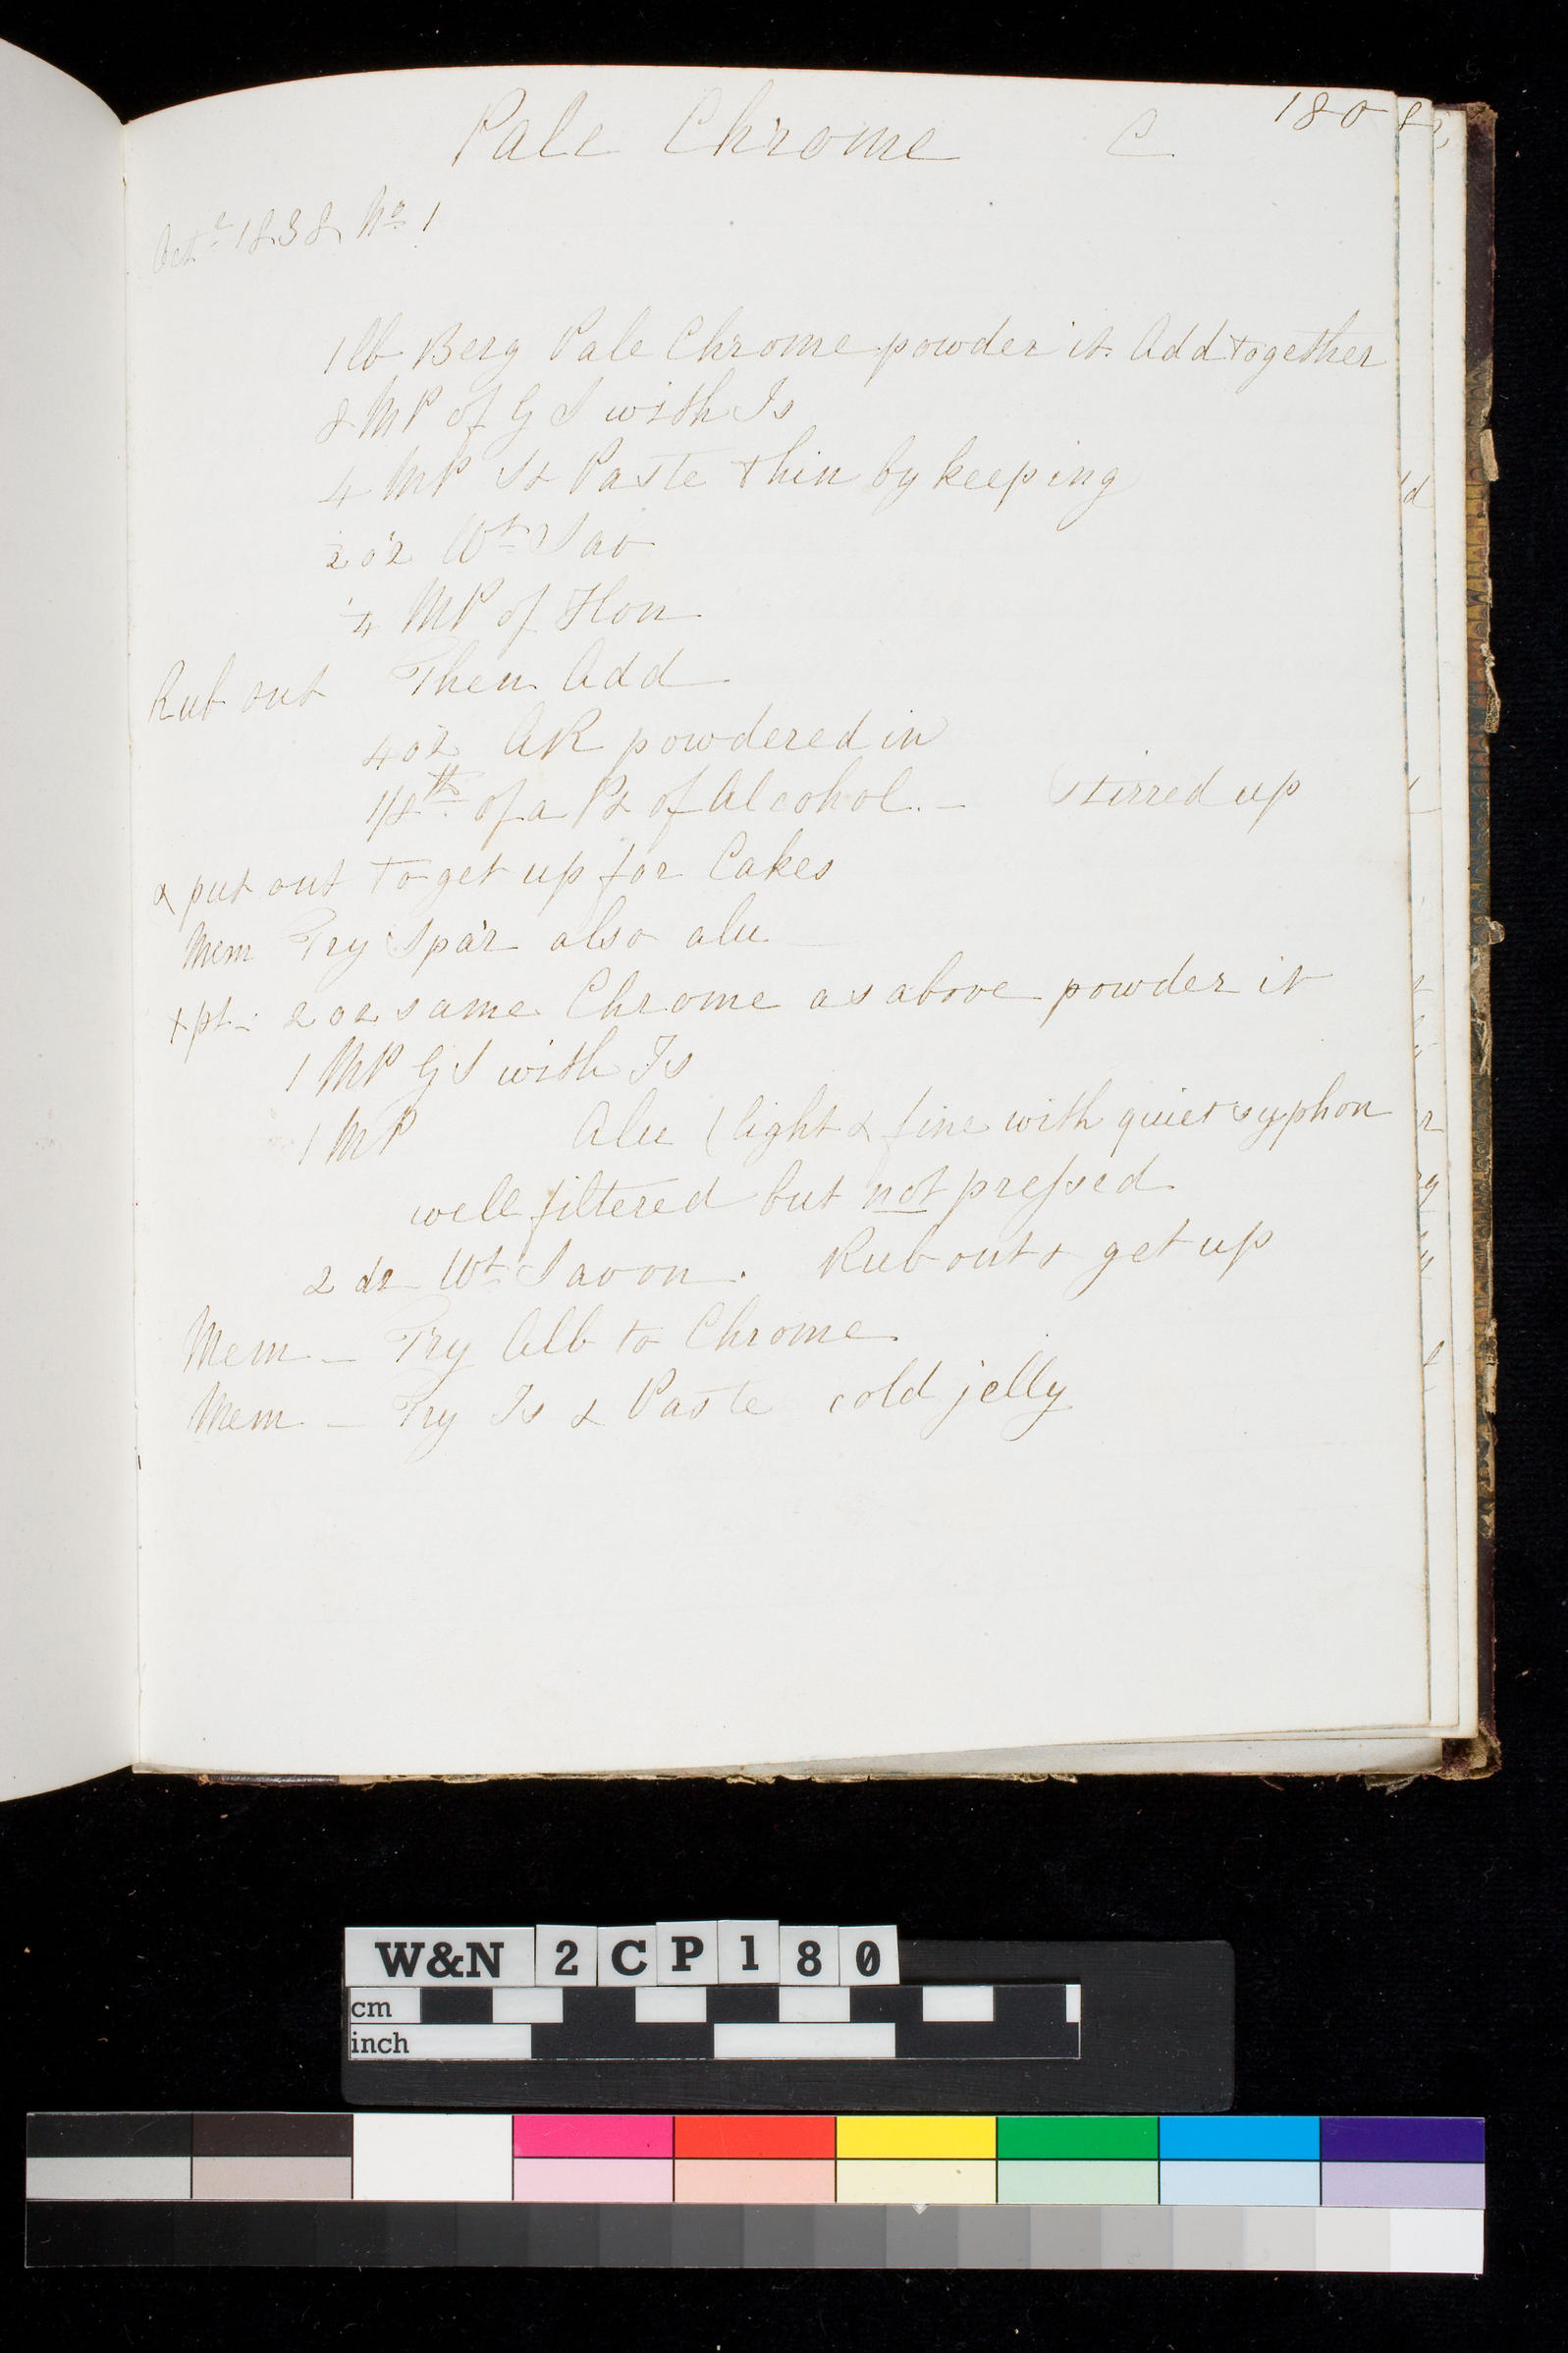 Pale Chrome C 180
Octr 1838 No 1
1 lb Berg Pale Chrome powder it. Add together
8 MP of G S with Is
4 MP St Paste thin by keeping
2 oz Wt Sav
1/4 MP of Hon
Rub out Then Add
4 oz AR powdered in
1/8th of a Pt of Alcohol. — Stirred up
& put out to get up for Cakes
Mem Try Spar also alu
xpt - 2 oz same Chrome as above powder it
1 MP G S with Is
1 MP Alu (light & fine with quiet syphon
well filtered but not pressed
2 dr Wt Savon. Rub out & get up
Mem — Try Alb to Chrome
Mem — Try Is & Paste cold jelly
W&N 2CP180
cm
inch